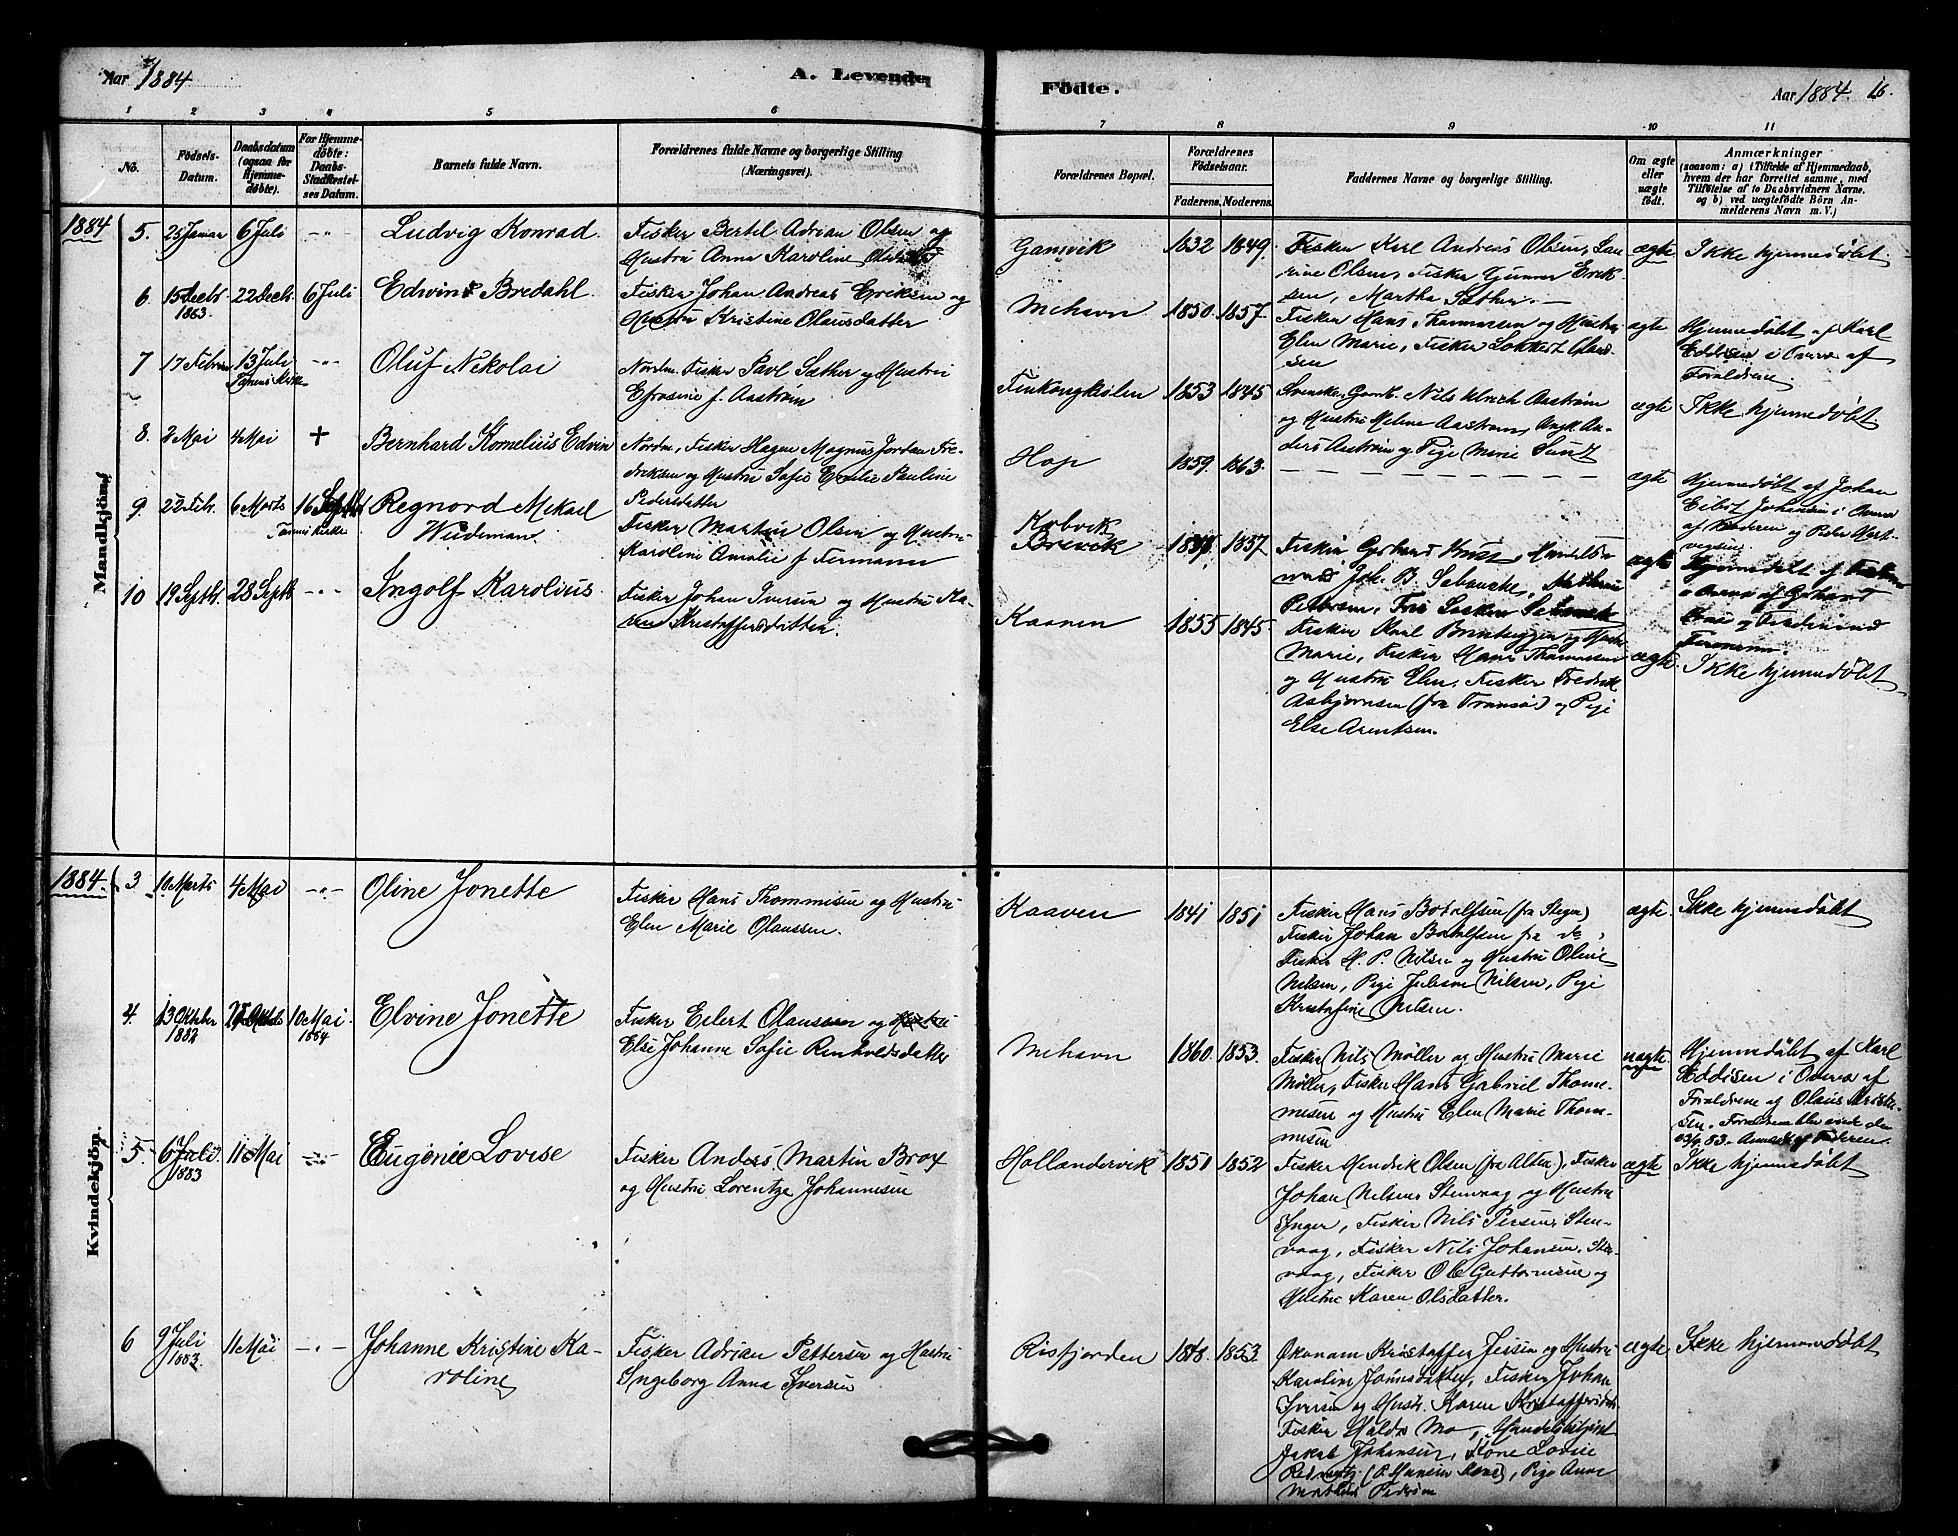 Aar 1884
A. Levende
Födte.
Aar 1884. 16.
1 2 3 4 5 6 7 8 9 10 11
No.
Födsels-
Datum.
Daabsdatum
(ogsaa for
Hjemme-
döbte).
For Hjemme-
döbte:
Daabs-
Stadfæstel-
ses Datum.
Barnets fulde Navn.
Forældrenes fulde Navne og borgerlige Stilling
(Næringsvei).
Forældrenes Bopæl.
Forældrenes
Födselsaar.
Faderens. Moderens.
Faddernes Navne og borgerlige Stilling.
Om ægte
eller
uægte
födt.
Anmærkninger
(saasom: a) i Tilfælde af Hjemmedaab,
hvem der har forrettet samme, med
Tilföielse af to Daabsvidners Navne,
og b) ved uægtefödte Börn An-
melderens Navn m. V.)
Mandkjön
1884
5. 25 Januar 6 Juli -"- Ludvig Konrad.
Fisker Bertel Adrian Olsen og
Hustru Anna Karoline
Gamvik 1832 1849.
Fisker Karl Andreas Olsen, Lau-
rine Olsen, Fisker Gunner Erik-
sen, Martha Sæther. —
ægte Ikke hjemmedøbt.
6. 15 Decbr. 1883 22 Decb. 6 Juli Edvin Bredahl.
Fisker Johan Andreas Eriksen og
Hustru Kristine Olausdatter
Mehavn 1850. 1857.
Fisker Hans Thommasen og Hustru
Elen Marie, Fisker Lokkert Olaus-
sen
ægte Hjemmedøbt af Karl
Eddisen i Overv. af
Forældrene.
7 17 Februar 13 Juli -"- Oluf Nikolai
Tanens Kirke
Nordm. Fisker Paul Sæther og Hustru
Efrosine f. Aastrøm
Finkongkeilen 1853 1845
Svenske, Gaardb. Nils Ulrich Aastrøm
og Hustru Helene Aastrøm, Ungk. An-
ders Aastrøm og Pige Marie Sund
ægte Ikke hjemmedøbt
8. 3 Mai 4 Mai + Bernhard Kornelius Edvin
Nordm. Fisker Hagen Magnus Jordan Fre-
driksen og Hustru Sofie Emilie Pauline
Pedersdatter
Hop 1859. 1863.
ægte Hjemmedøbt af Johan
Eibert Johansen i Overv.
af Faderen og Peder Hart-
vigsen.
9. 22 Feb. 6 Marts 16 Septb. Regnord Mikael
Tanens Kirke Wideman.
Fisker Martin Olsen og Hustru
Karoline Amalie f Fermann
Brevik 1857
Fisker Gerhard
ægte Hjemmedøbt af
10 19 Septb. 28 Septb. -"- Ingolf Karolius.
Fisker Johan Iversen og Hustru Ka-
ren Kristoffersdatter.
Kaaven 1855 1845.
Marie, Fisker Hans Thommassen
og Hustru Elen, Fisker Fredrik
Asbjørnsen (fra Tromsø) og Pige
Else Arentsen.
ægte. Ikke hjemmedøbt
Kvindekjön.
1884.
3. 10 Marts 4 Mai -"- Oline Jonette
Fisker Hans Thommesen og Hustru
Elen Marie Olaussen.
Kaaven 1841 1851
Fisker Hans Botolfsen (fra Stegen)
Fisker Johan Botolfsen fra do,
Fisker H. P. Nilsen og Hustru Oline
Nilsen, Pige Juliane Nilsen, Pige
Kristofine Nilsen.
ægte. Ikke hjemmedøbt
4. 13 Oktober 1882 10 Mai 1884 Elvine Jonette
Fisker Eilert Olaussen og Hustru
Else Johanne Sofie Reinholdsdatter
Mehavn 1860. 1853.
Fisker Nils Møller og Hustru Marie
Møller, Fisker Hans Gabriel Thom-
mesen og Hustru Elen Marie Thom-
mesen
uægte. Hjemmedøbt af Karl
Eddisen i Overv. af
Forældrene og Olaus Kristen-
sen. Forældrene blev viede den
23/9 83. Anmeldt af Faderen.
5. 6 Juli 1883 11 Mai -"- Eugenie Lovise
Fisker Anders Martin Brox
og Hustru Lorentze Johannesen
Hollandervik 1851 1852
Fisker Hendrik Olsen (fra Alten), Fisker
Johan Nilsen Stenvaag og Hustru
Inger, Fisker Nils Persen, Sten-
vaag, Fisker Nils Johansen, Sten-
vaag, Fisker Ole Guttormsen og
Hustru Karen Olsdatter.
ægte Ikke hjemmedøbt
6 9 Juli 1883. 11 Mai -"- Johanne Kristine Ka-
roline
Fisker Adrian Pettersen og Hustru
Ingeborg Anna Iversen
Risfjorden 1848. 1853.
Økonom Kristoffer Jessen og Hustru
Karoline Jonnsdatter, Fisker Johan
Iversen og Hustr. Karen Kristoffersdt.
Fisker Haldr Mo, Handelsbetjent
Jakob Johansen, Kone Lovise
(P. Hansen Kone), Pige Anne
ægte Ikke hjemmedøbt